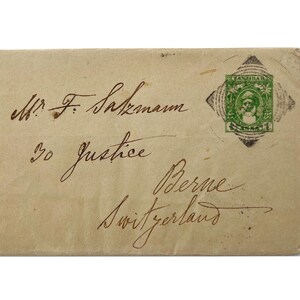 ZANZIBAR
Mr F. Salzmann
30 Justice
Berne
Switzerland